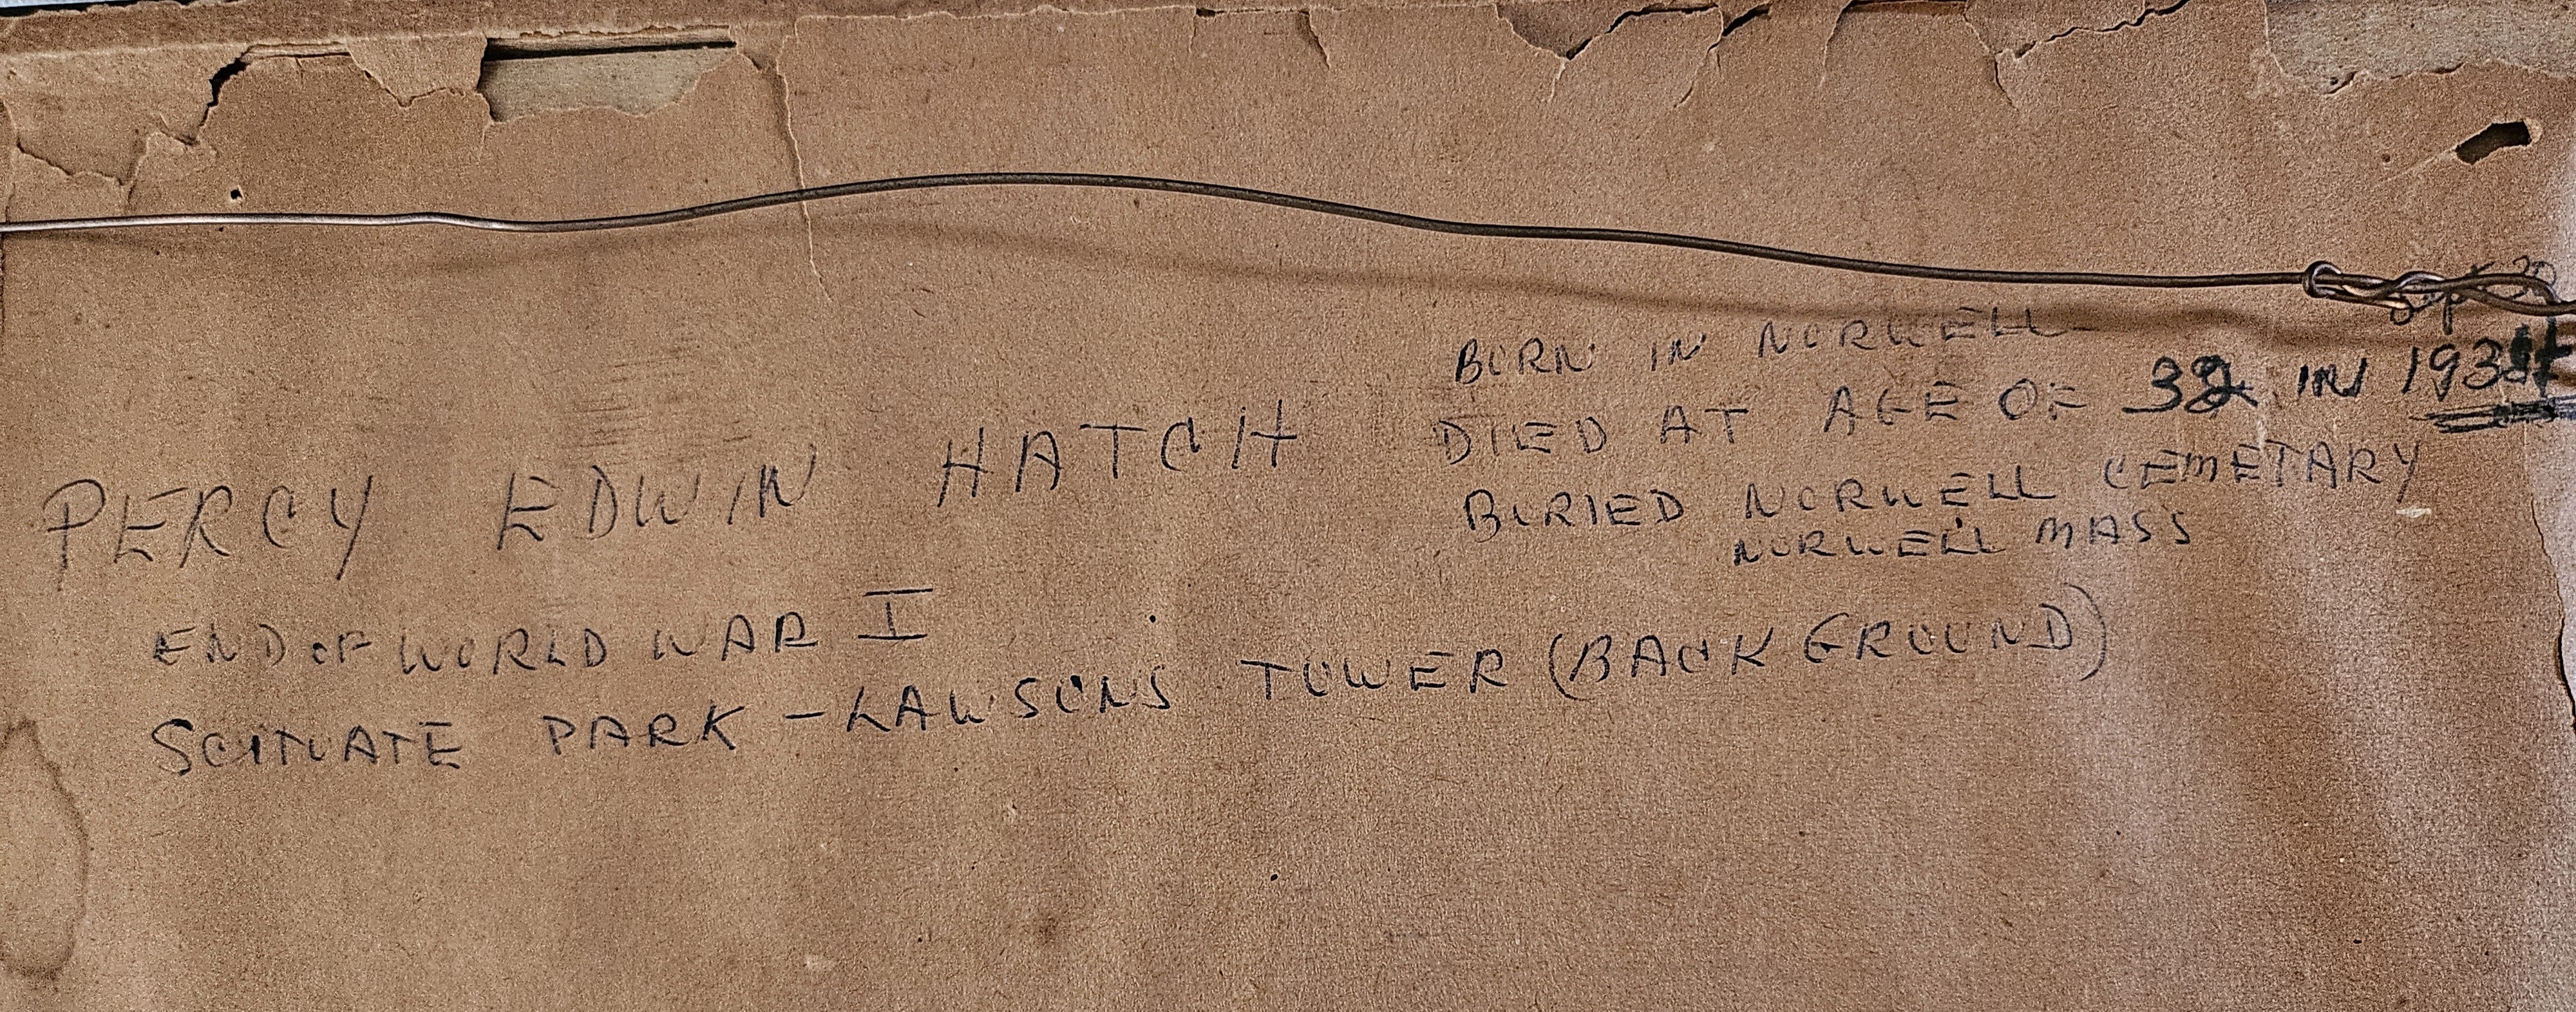 BORN IN NORWELL
DIED AT AGE OF 32 IN
PERCY EDWIN HATCH
BURIED NORWELL CEMETARY
NORWELL MASS
END OF WORLD WAR I
SCITUATE PARK - LAWSON'S TOWER (BACK GROUND)